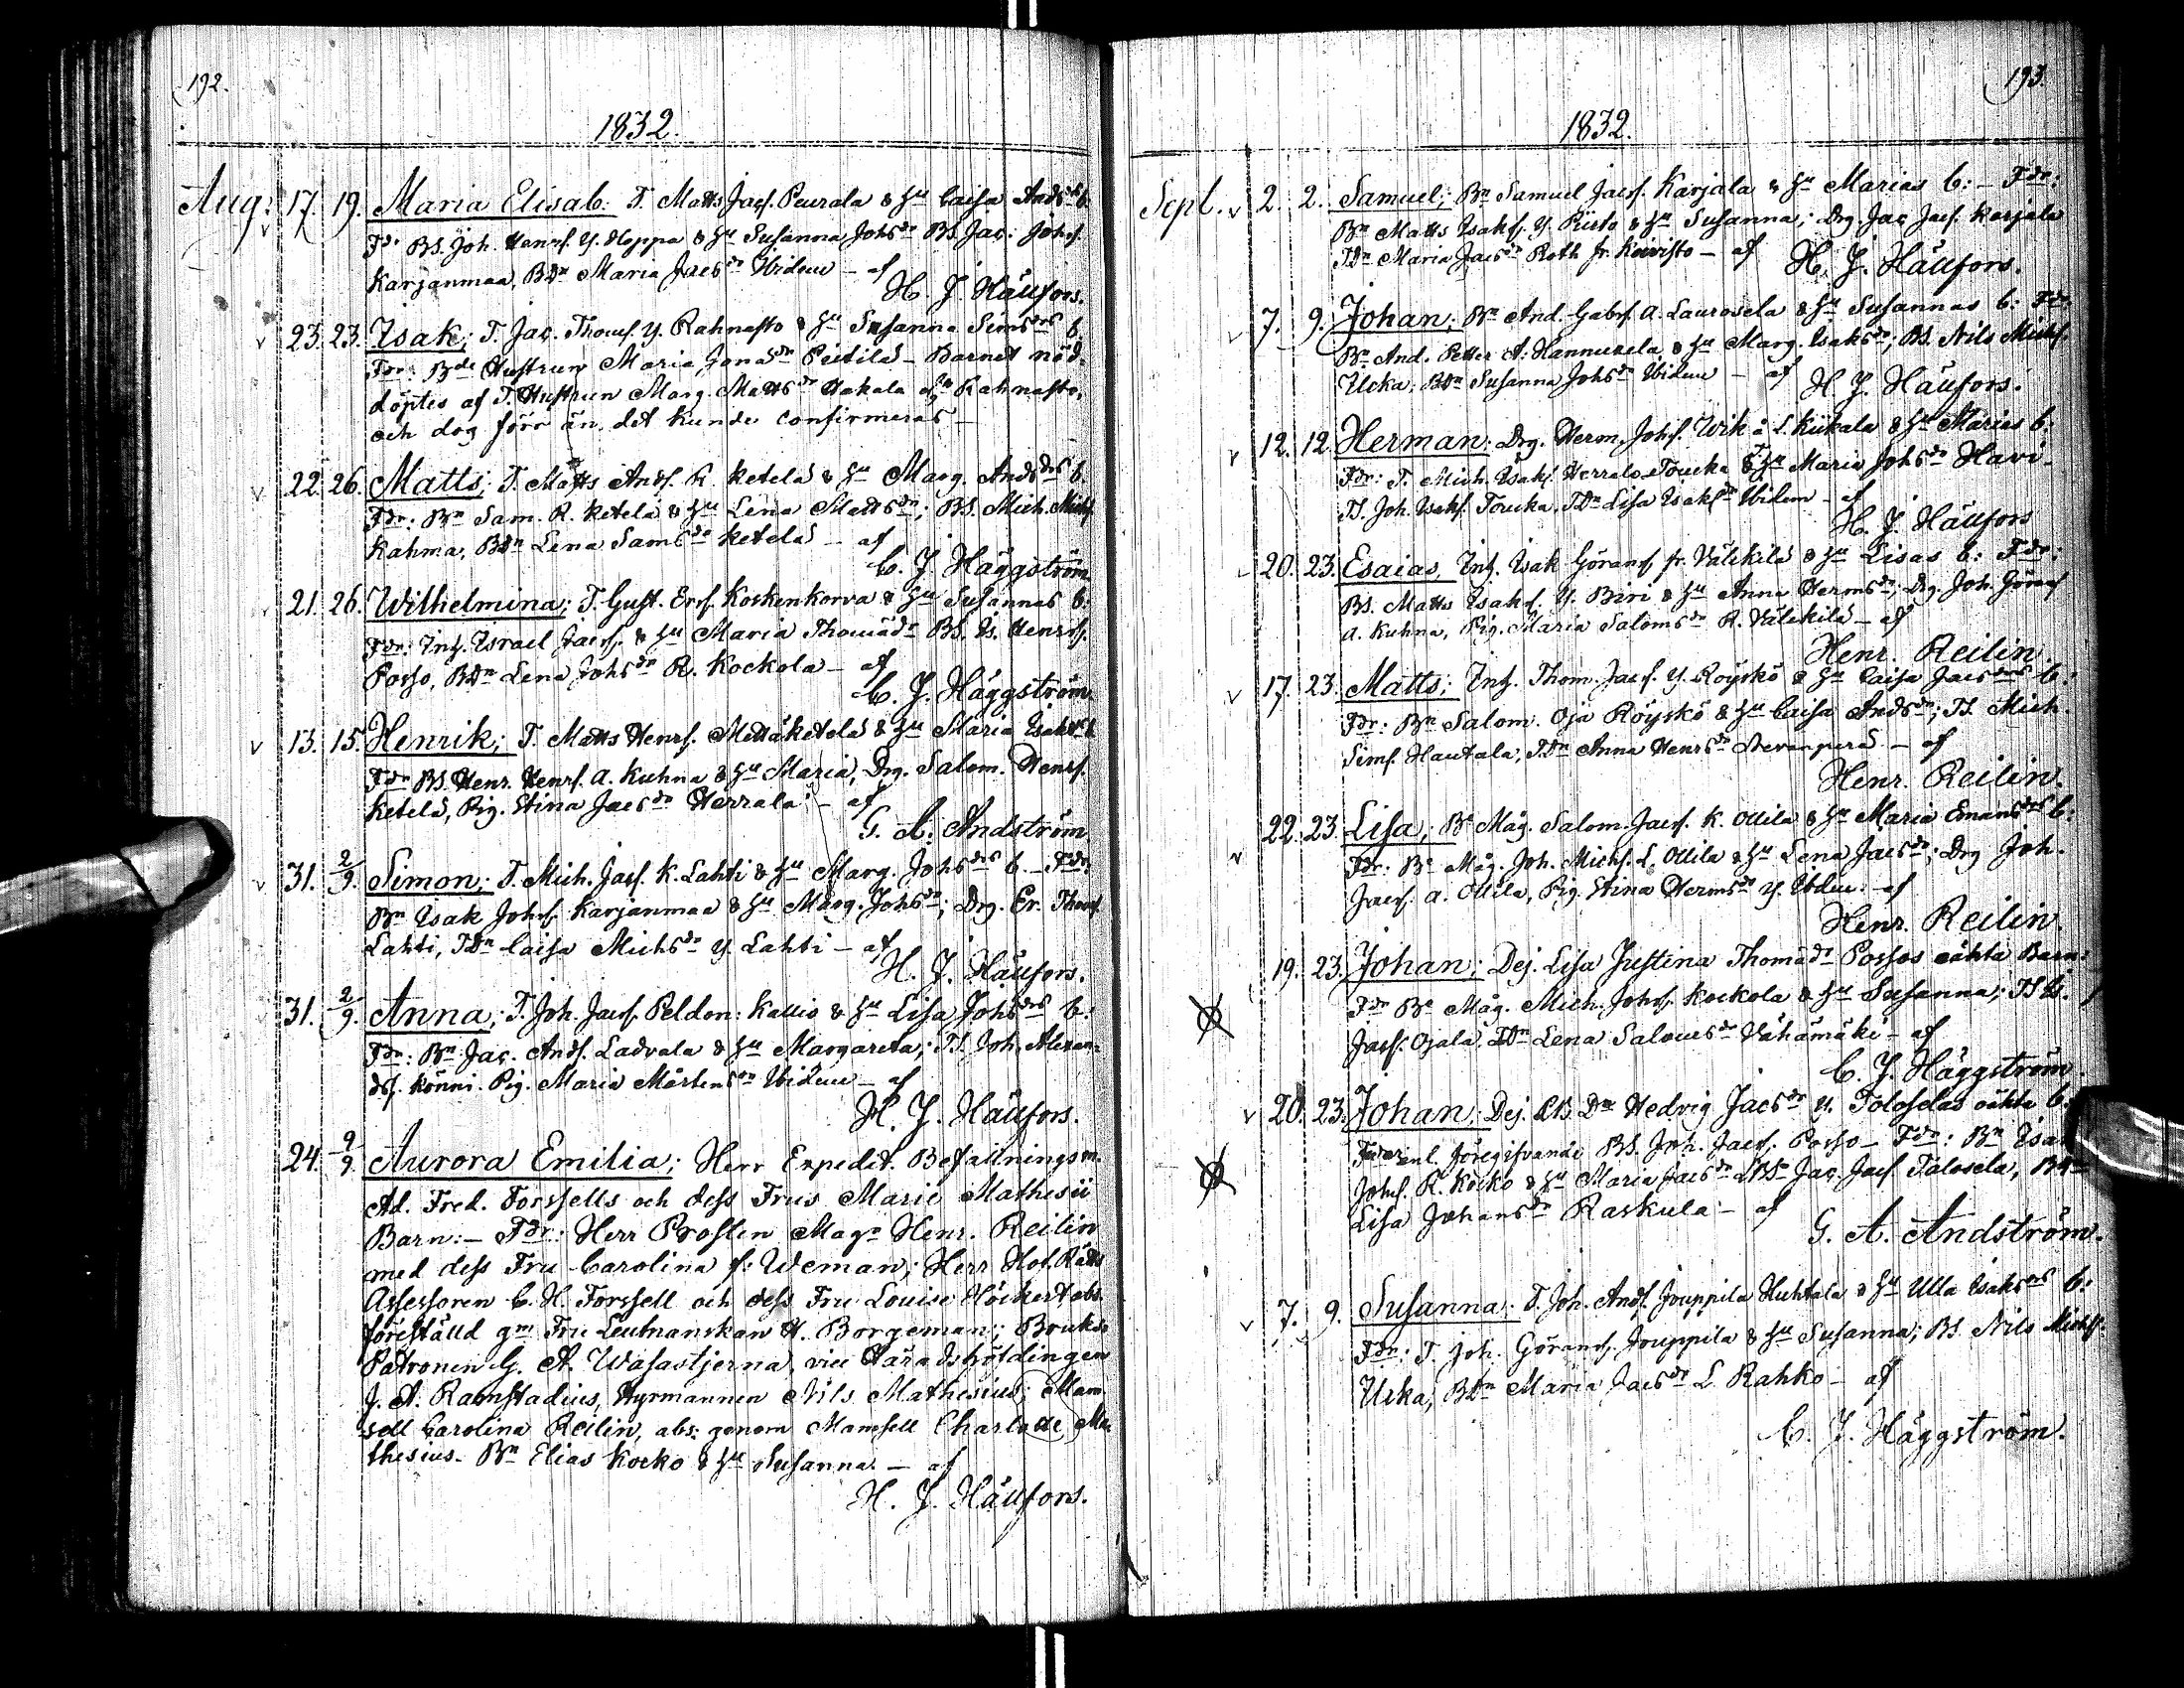 192.
1832.
Aug: 17. 19. Maria Elisab: T. Matts Jacs. Peurala & Hu Caisa Andsdrs b.
Fdr BS. Joh. Henrs. Y. Hoppa & Hu Susanna Johsdr BS. Jac. Johs.
Karjanmaa, BDr Maria Jacsdr Ibidem – af
H. J. Hällfors.
23. 23. Isak; T. Jac. Thoms. Y. Rahnasto & Hu Susanna Simsdrs b.
Fdr: Bde Hustrun Maria Jonasdr Peitila – Barnet nöd-
döptes af T. Hustrun Marg. Mattsdr Hakala Rahnasto,
och dog förr än det kunde confirmeras –
22. 26. Matts; T. Matts Ands. R. Ketela & Hu Marg. Andsdrs b.
Fdr: Bn Sam. R. Ketela & Hu Lena Mattsdr; BS. Mich. Michs.
Rahma, BDr Lena Samsdr Ketela – af
C. J. Häggström
21. 26. Wilhelmina; T. Gust. Ers. Koskenkorva & Hu Susannas b:
Fdr: Inh. Israel Jacs. & Hu Maria Thomædr BS. Is. Henrs.
Posso, BDr Lena Johsdr R. Kockola – af
C. J. Häggström
13. 15. Henrik; T. Matts Henrs. Mettäketela & Hu Maria Isaksdrs b
Fdr BS. Henr. Henrs. A. Kuhna & Hu Maria, Drg. Salom. Henrs.
Ketela, Pig. Stina Jacsdr Herrala: – af
G. A. Andström
31. 2/9. Simon; T. Mich. Jacs. K. Lahti & Hu Marg. Johsdrs b – Fdr:
Bn Isak Johs. Karjanmaa & Hu Marg. Johsdr; Drg. Er. Thoms.
Lahti, TDr Caisa Michsdr Y. Lahti – af
H. J. Hällfors.
31. 2/9. Anna; T. Joh. Jacs. Peldon: Kallio & Hu Lisa Johsdrs b:
Fdr: Bn Jac. Ands. Ladvala & Hu Margareta; TS. Joh. Alexan-
ds. Könni. Pig. Maria Mårtensdr Ibidem – af
H. J. Hällfors.
24. 9/9. Aurora Emilia; Herr Expedit. Befallningsm.
Ad. Fred. Forssells och dess Frus Marie Mathesii
Barn: – Fdr: Herr Prosten Magr Henr. Reilin
med dess Fru Carolina f: Weman; Herr Hof. Rätts
Assessoren C. H. Forssell och dess Fru Louise Höckert abs.
föreställd gm Fru Leutnanskan H. Borgeman; Bruks-
Patronen G. A. Wasastjerna, vice Häradshöfdingen
J. A. Ramstadius, Styrmannen Nils Mathesius; Mam-
sell Carolina Reilin, abs: genom Mamsell Charlotte Ma-
thesius. Bn Elias Kocko & Hu Susanna – af
H. J. Hällfors.
193.
1832.
Sept. 2. 2. Samuel; Bn Samuel Jacs. Karjala & Hu Marias b: – Fdr:
Bn Matts Isaks. Y. Risto & Hu Susanna; Drg. Jac. Jacs. Karjala
TDr Maria Jacsdr Roth fr. Koivisto – af H. J. Hällfors.
7. 9. Johan; Bn And. Gabrs. A. Laurosela & Hu Susannas b: Fdr:
Bn And. Petter A. Hannuxela & Hu Marg. Isaksdr; BS. Nils Michs.
Ucka; BDr Susanna Johsdr Ibidem – af H. J. Hällfors.
12. 12. Herman; Drg. Herm. Johs. Wik å L. Kiikala & Hu Marias b:
Fdr: T. Mich. Isaks. Herrala Toucka & Hu Maria Johsdr Havi-
TS. Joh. Isaks. Toucka, TDr Lisa Isaksdr Ibidem – af
H. J. Hällfors
20. 23. Esaias, Inh. Isak Görans. fr. Välikilä & Hu Lisas b: Fdr:
BS. Matts Isaks. Y. Biri & Hu Anna Hermsdr; Drg. Joh. Görans
A. Kuhna, Pig. Maria Salomsdr R. Välikilä – af
Henr. Reilin
17. 23. Matts; Inh. Thom. Jacs. Y. Röyskö & Hu Caisa Jacsdrs b:
Fdr: Bn Salom. Oja Röyskö & Hu Caisa Andsdr; TS. Mich.
Sims. Hautala, TDr Anna Henrsdr Nevanperä – af
Henr. Reilin.
22. 23. Lisa; Bn Måg. Salom. Jacs. K. Ollila & Hu Maria Emansdrs b:
Fdr: Bn Måg. Joh. Michs. L. Ollila & Hu Lena Jacsdr; Drg Joh.
Jacs. A. Ollila, Pig. Stina Hermsdr Y. Ibdm. af
Henr. Reilin.
19. 23. Johan; Dej. Lisa Justina Thomædr Possos oäkta Barn:
Fdr Bn Måg. Mich. Johs. Kockola & Hu Susanna; TS Is.
Jacs. Ojala, TDr Lena Salomsdr Vähämäki – af
C. J. Häggström.
20. 23. Johan; Dej. BDr Hedvig Jacsdr Y. Toloselas oäkta b.
Fader enl. föregifvande BS. Joh. Jacs. Posso – Fdr: Bn Isak
Johs. R. Kocko & Hu Maria Jacsdr BSn Jac. Jacs. Talosela, BDr
Lisa Johansdr Raskula – af
G. A. Andström.
7. 9. Susanna; T. Joh. Ands. Jouppila Huhtala & Hu Ulla Isaksdrs b:
Fdr: T. Joh. Görans. Jouppila & Hu Susanna; BS. Nils Michs.
Ucka, BDr Maria Jacsdr L. Rahko – af
C. J. Häggström.